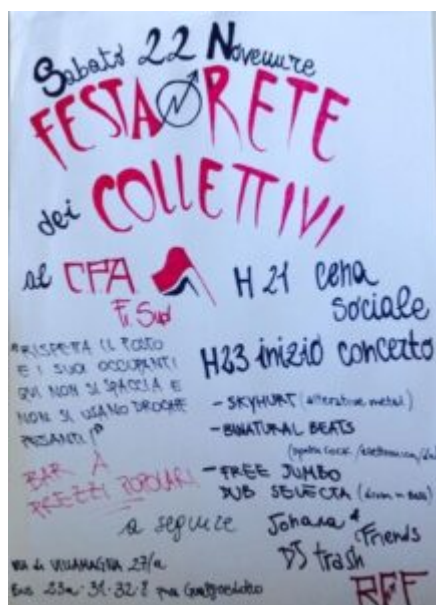 Sabato 22 Novembre
FESTA RETE
dei COLLETTIVI
al CPA
Fi Sud
H 21 cena
sociale
"RISPETTA IL POSTO
E I SUOI OCCUPANTI
QUI NON SI SPACCIA E
NON SI USANO DROGHE
PESANTI!"
BAR A
PREZZI POPOLARI
H23 inizio concerto
- SKYHURT (alterative metal)
- BINATURAL BEATS
(synth rock / elettronica /
- FREE JUMBO
DUB SELECTA (drum n Bass)
a seguire Johana &
Friends
DJ trash
Via di VILLAMAGNA 27/a
Bus 23a-31-32-8